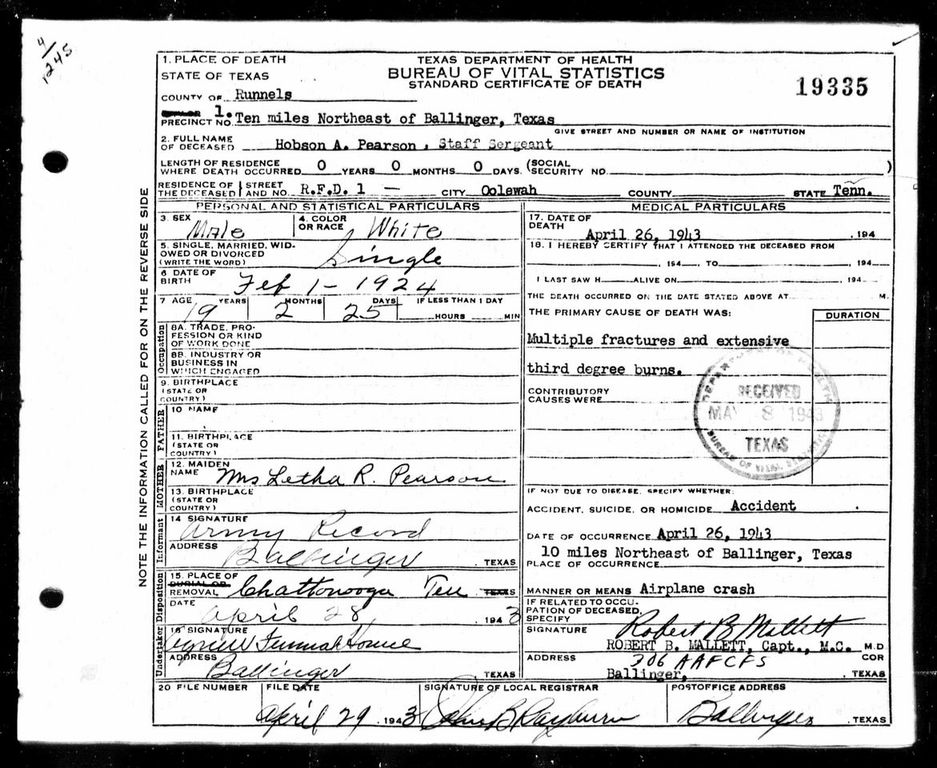 4/1245
TEXAS DEPARTMENT OF HEALTH
BUREAU OF VITAL STATISTICS
STANDARD CERTIFICATE OF DEATH
19335
1. PLACE OF DEATH
STATE OF TEXAS
COUNTY OF Runnels
PRECINCT NO. 1. Ten miles Northeast of Ballinger, Texas
GIVE STREET AND NUMBER OR NAME OF INSTITUTION
2. FULL NAME OF DECEASED Hobson A. Pearson, Staff Sergeant
LENGTH OF RESIDENCE WHERE DEATH OCCURRED 0 YEARS 0 MONTHS 0 DAYS. (SOCIAL SECURITY NO. )
RESIDENCE OF THE DECEASED STREET AND NO. R.F.D. 1 — CITY Oolewah COUNTY STATE Tenn.
PERSONAL AND STATISTICAL PARTICULARS
3. SEX Male
4. COLOR OR RACE White
5. SINGLE, MARRIED, WIDOWED OR DIVORCED (WRITE THE WORD) Single
6 DATE OF BIRTH Feb 1 - 1924
7 AGE 19 YEARS 2 MONTHS 25 DAYS IF LESS THAN 1 DAY HOURS MIN
Occupation
8A. TRADE, PROFESSION OR KIND OF WORK DONE
8B. INDUSTRY OR BUSINESS IN WHICH ENGAGED
9. BIRTHPLACE (STATE OR COUNTRY)
FATHER
10 NAME
11. BIRTHPLACE (STATE OR COUNTRY)
MOTHER
12. MAIDEN NAME Mrs Letha R. Pearson
13. BIRTHPLACE (STATE OR COUNTRY)
Informant
14 SIGNATURE Army Record
ADDRESS Ballinger TEXAS
Disposition
15. PLACE OF BURIAL OR REMOVAL Chattonooga Ten TEXAS
DATE April 28 1943
Undertaker
16 SIGNATURE Funeral Home
ADDRESS Ballinger TEXAS
MEDICAL PARTICULARS
17. DATE OF DEATH April 26, 1943 , 194
18. I HEREBY CERTIFY THAT I ATTENDED THE DECEASED FROM
, 194 , TO , 194
I LAST SAW H ALIVE ON , 194
THE DEATH OCCURRED ON THE DATE STATED ABOVE AT M.
THE PRIMARY CAUSE OF DEATH WAS: DURATION
Multiple fractures and extensive
third degree burns.
CONTRIBUTORY CAUSES WERE
DEPARTMENT OF HEALTH
RECEIVED
MAY 8 1943
TEXAS
BUREAU OF VITAL STATISTICS
IF NOT DUE TO DISEASE, SPECIFY WHETHER:
ACCIDENT, SUICIDE, OR HOMICIDE Accident
DATE OF OCCURRENCE April 26, 1943
10 miles Northeast of Ballinger, Texas
PLACE OF OCCURRENCE
MANNER OR MEANS Airplane crash
IF RELATED TO OCCUPATION OF DECEASED, SPECIFY
SIGNATURE Robert B Mallett
ROBERT B. MALLETT, Capt., M.C. M.D
ADDRESS 306 AAFCFS COR
Ballinger, , TEXAS
20 FILE NUMBER
FILE DATE April 29, 1943
SIGNATURE OF LOCAL REGISTRAR
POSTOFFICE ADDRESS Ballinger , TEXAS
NOTE THE INFORMATION CALLED FOR ON THE REVERSE SIDE